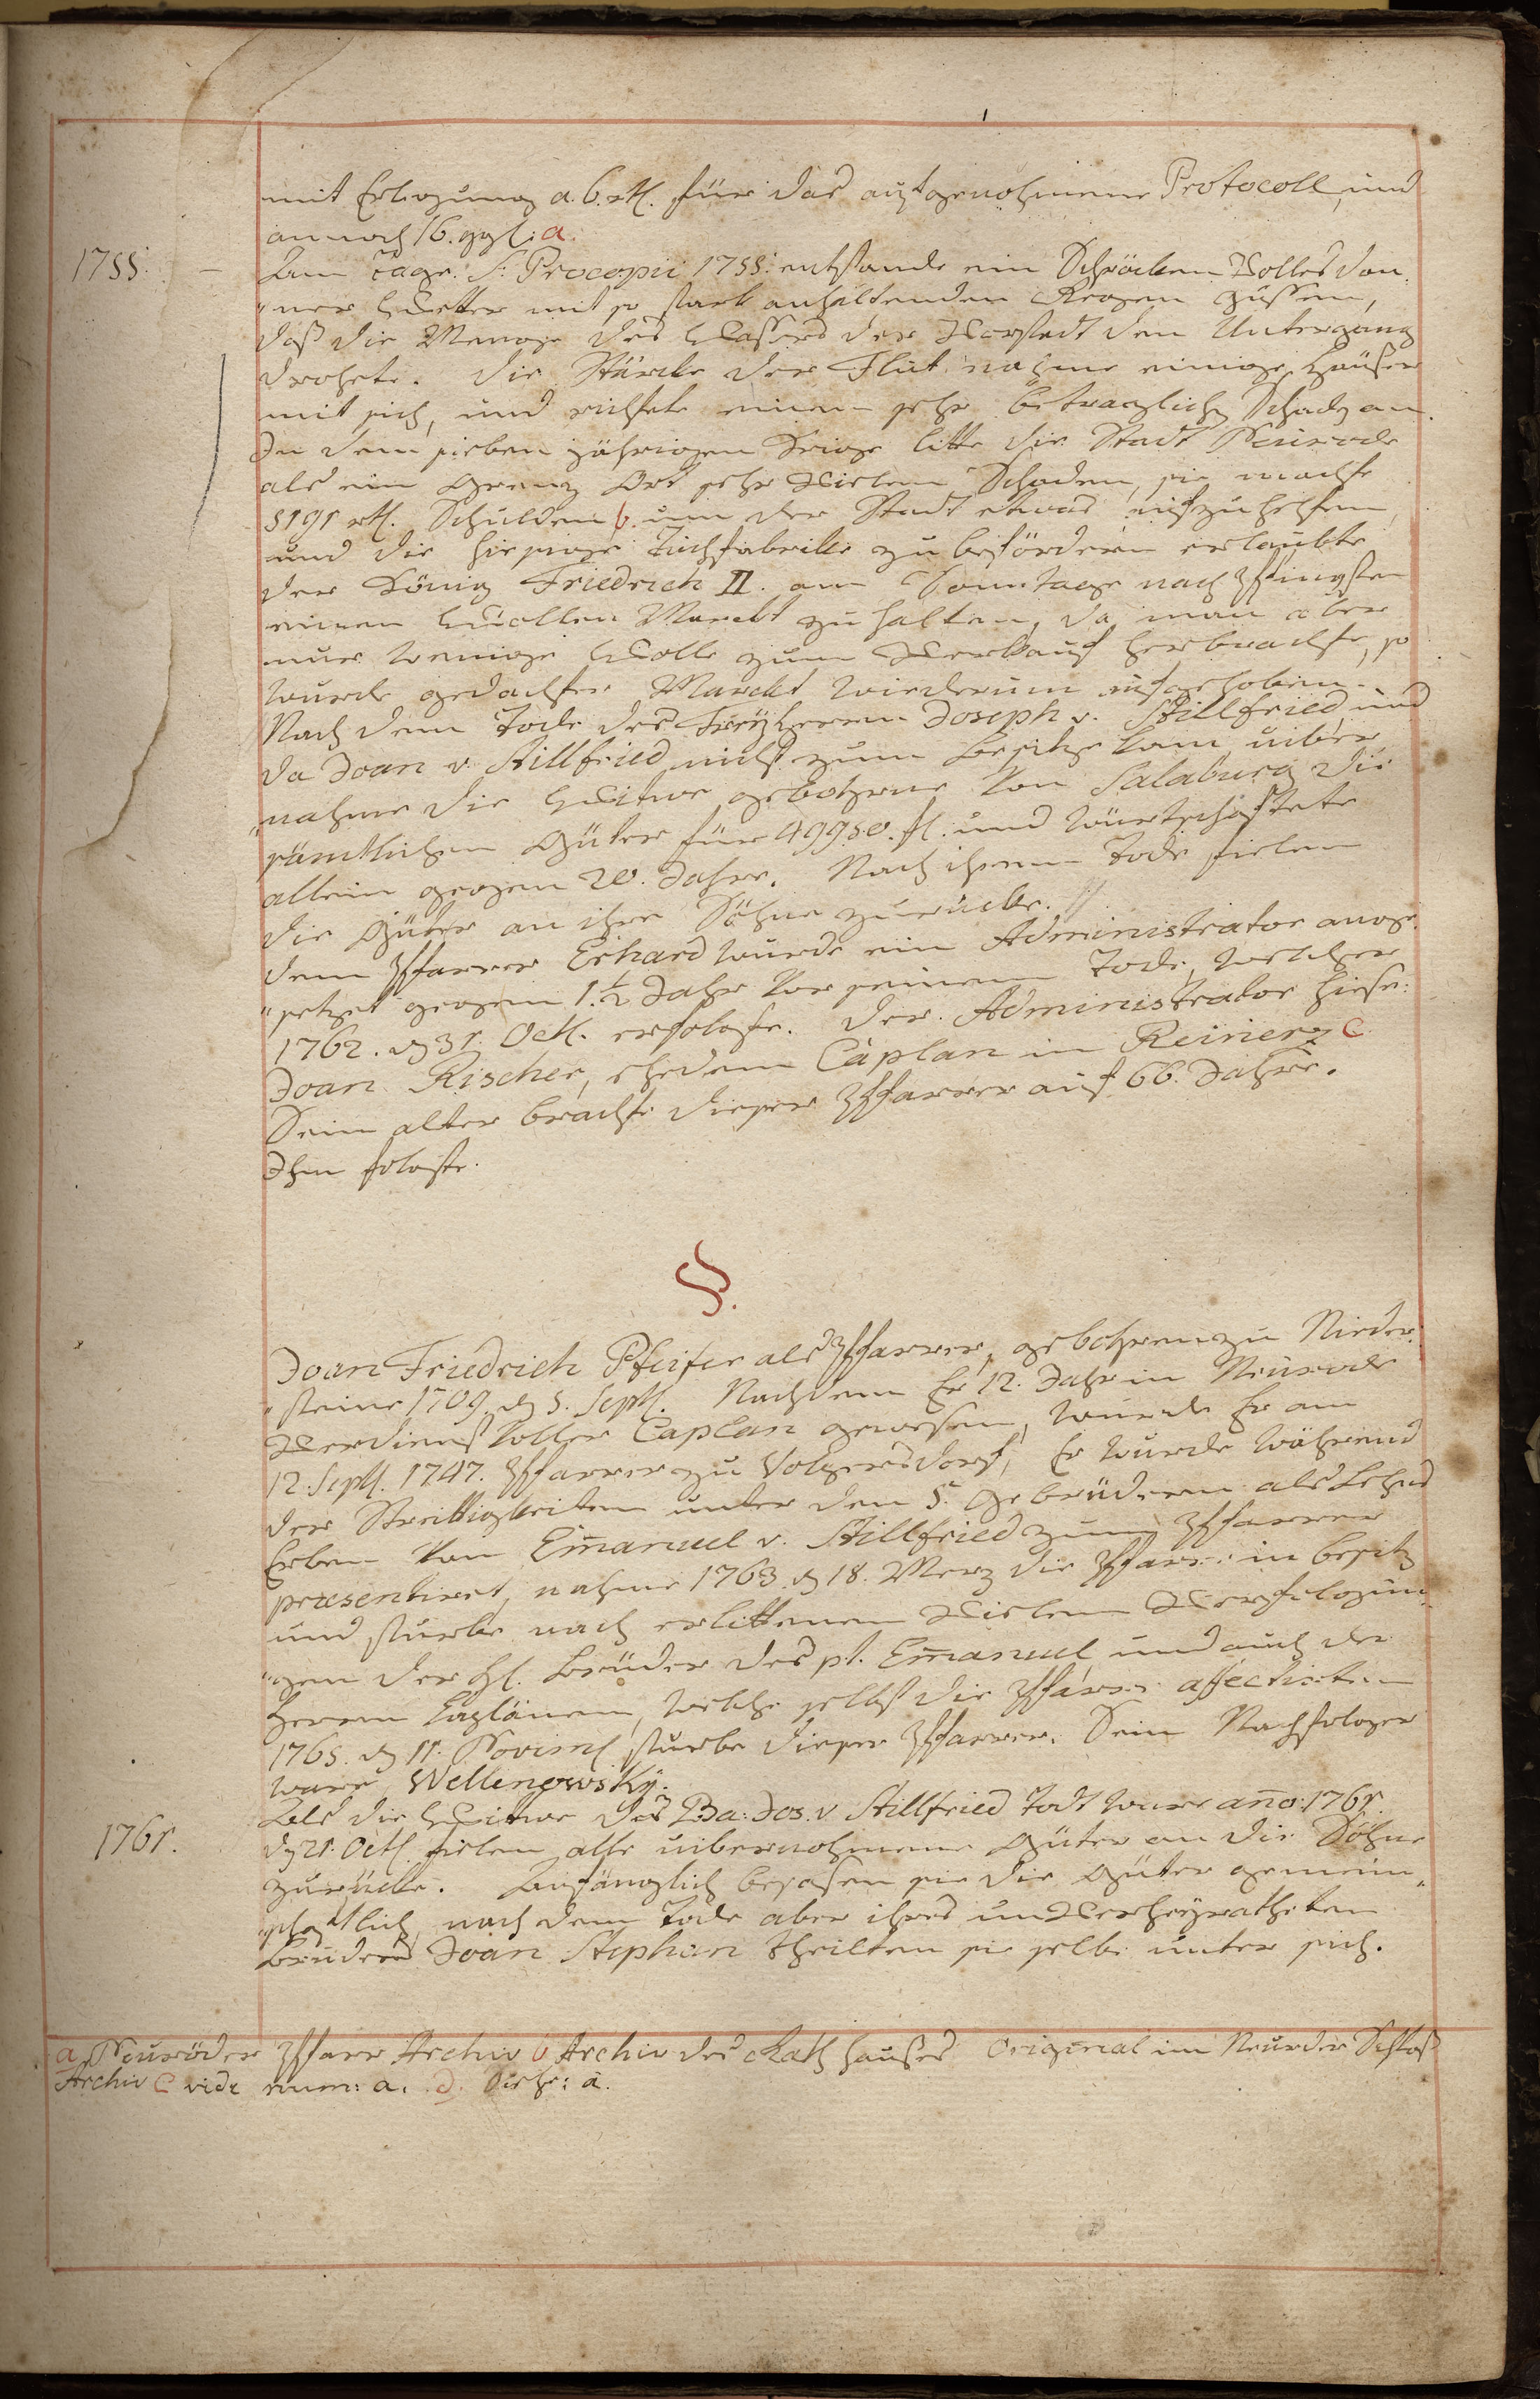 mit Erlegung a. 6. rtl. für das aufgenohmene Protocoll, und
annoch 16. ggl: a.
1755: – Am Tage S: Procopii 1755: entstande ein Schröcken Volles don
"ner Wetter mit so stark anhaltenden Regen güssen,
daß die Menge des Wassers der Vorstadt den Untergang
drohete. Die Stärcke der Flut nahme einige Häußer
mit sich, und richtete einen sehr beträglichen Schaden an.
In dem sieben jährigen Kriege litte die Stadt Neurode
als ein Grenz Ort sehr Vielen Schaden, sie machte
5191 rtl. Schulden b. um der Stadt etwas aufzuhelfen,
und die hiesige Tuchfabrike zu befördern erlaubte
der König Friedrich II. am Sonntage nach Pfingsten
einen Wollen Marckt zu halten, da man aber
nur wenige Wolle zum Verkauf herbrachte, so
wurde gedachter Marckt wiederum aufgehoben.
Nach dem Tode des Freyherrn Joseph v. Stillfried, und
da Joan v. Stillfried nicht zum Besitze kam, uiber
"nahme die Witwe gebohrne Von Salaburg die
sämtlichen Güter für 49950. fl. und würtschaftete
allein gegen 20. Jahre. Nach ihrem Tode fielen
die Güter an ihre Söhne zurücke. //.
Dem Pfarrer Erhard wurde ein Administrator ange
"setzet gegen 1. ½ Jahr Vor seinem Tode, welcher
1762. d 31. Octl. erfolgte. Der Administrator hiese:
Joan Rischer, ehedem Caplan in Reinerz c
Sein alter brachte dieser Pfarrer auf 66. Jahre.
Ihm folgte.
§.
Joan Friedrich Pfeifer als Pfarrer, gebohren zu Nieder
"steine 1709. d 5. Septl. Nachdem Er 12. Jahr in Neurode
Verdienst Voller Caplan gewesen, wurde Er am
12. Septl. 1747. Pfarrer zu Volpersdorf, Er wurde während
der Streittigkeiten unter den 5. Gebrüdern als Lehns
Erben Von Em̄anuel v. Stillfried zum Pfarrer
præsentiret, nahme 1763. d 18. Merz die Pfarre in besitz
und sturbe nach erlittenen Vielen Verfolgun
"gen der Hl. Brüder des pl. Em̄anuel und auch der
Herren Caplänen, welche selbst die Pfarre affectirten
1765. d 11. Noviml sturbe dieser Pfarrer. Sein Nachfolger
ware Wellenowsky.
1761. Als die Witwe des Ba: Jos. v. Stillfried Todt ware an̄o: 1761.
d 21. Octl. fielen alle uibernohmene Güter an die Söhne
zurücke. Anfänglich besasen sie die Güter gemein
"schaftlich, nach dem Tode aber ihres unVerheyratheten
Bruders Joan Stephan theilten sie selbe unter sich.
a Neuröder Pfarr Archiv b Archiv des Rath Hauses Original im Neuroder Schloß
Archiv c vide num: a. d. Siehe: a.